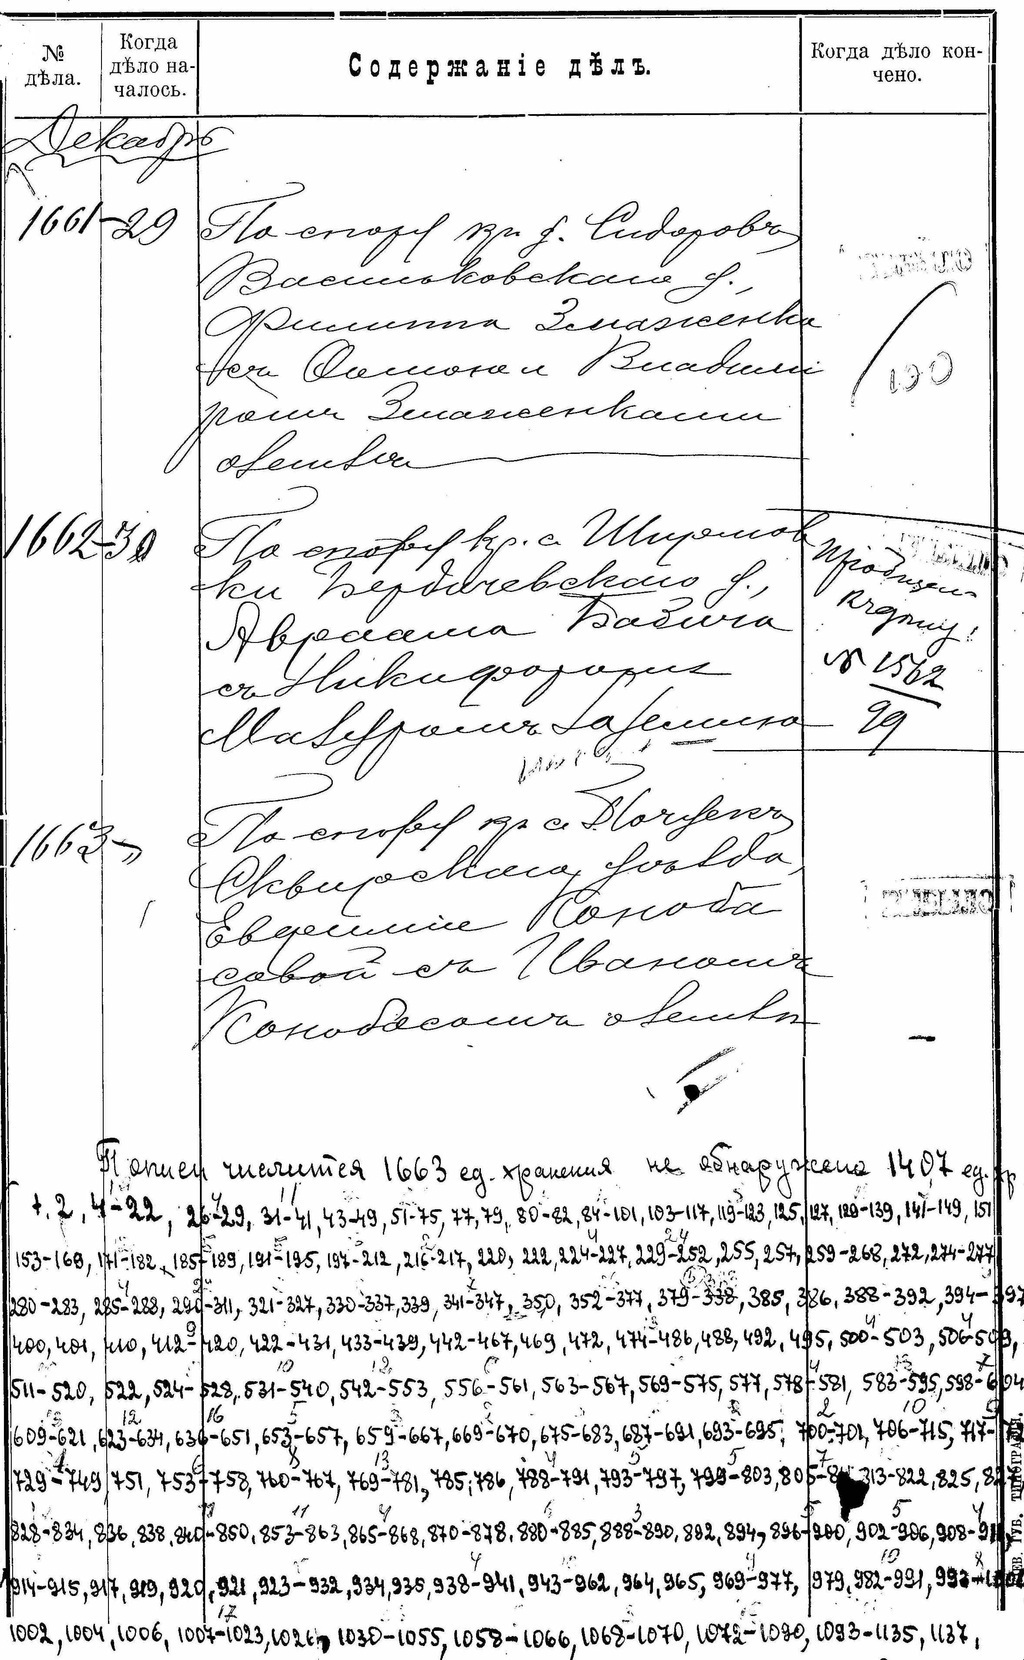 № дѣла.
Когда дѣло началось.
Содержаніе дѣлъ.
Когда дѣло кончено.
Декабрь
1661-29 По спору кр. д. Сидоровъ
Васильковскаго у.,
Филиппа Змаженка
съ Владими
ромъ Змаженками
о землѣ
1662-30 По спору кр. с. Ширмов
ки Бердичевскаго у.,
Авраама Бабича
съ Никифоромъ
Мазуромъ за землю
№ 1562
99
1663-" По спору кр. с. Почуекъ
Сквирскаго уѣзда,
Евфиміи Коноба
совой съ Иваномъ
Конобасомъ о землѣ
П описи числится 1663 ед. хранения не обнаружено 1407 ед. хр
1. 2, 4-22, 26-29, 31-41, 43-49, 51-75, 77, 79, 80-82, 84-101, 103-117, 119-123, 125, 127, 129-139, 141-149, 151
153-169, 171-182, 185-189, 191-195, 197-212, 216-217, 220, 222, 224-227, 229-252, 255, 257, 259-268, 272, 274-277
280-283, 285-288, 290-311, 321-327, 330-337, 339, 341-347, 350, 352-377, 385, 386, 388-392, 394-397
400, 401, 410, 412-420, 422-431, 433-439, 442-467, 469, 472, 474-486, 488, 492, 495, 500-503, 506-509,
511-520, 522, 524-528, 531-540, 542-553, 556-561, 563-567, 569-575, 577, 578-581, 583-595, 598-604
609-621, 623-634, 636-651, 653-657, 659-667, 669-670, 675-683, 687-691, 693-695, 700-701, 706-715, 717-
729-749, 751, 753-758, 760-767, 769-781, 785, 786, 788-791, 793-797, 799-803, 805- 813-822, 825, 827
828-834, 836, 838, 840-850, 853-863, 865-868, 870-878, 880-885, 888-890, 892, 894, 896-900, 902-906, 908-911,
914-915, 917, 919, 920, 921, 923-932, 934, 935, 938-941, 943-962, 964, 965, 969-977, 979, 982-991,
1002, 1004, 1006, 1007-1023, 1026, 1030-1055, 1058-1066, 1068-1070, 1072-1090, 1093-1135, 1137,